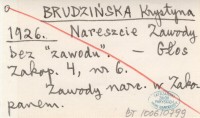 BRUDZIŃSKA Krystyna
1926. Nareszcie Zawody
bez "zawodu". - Głos
Zakop. 4, nr 6.
Zawody narc. w Zako-
panem.